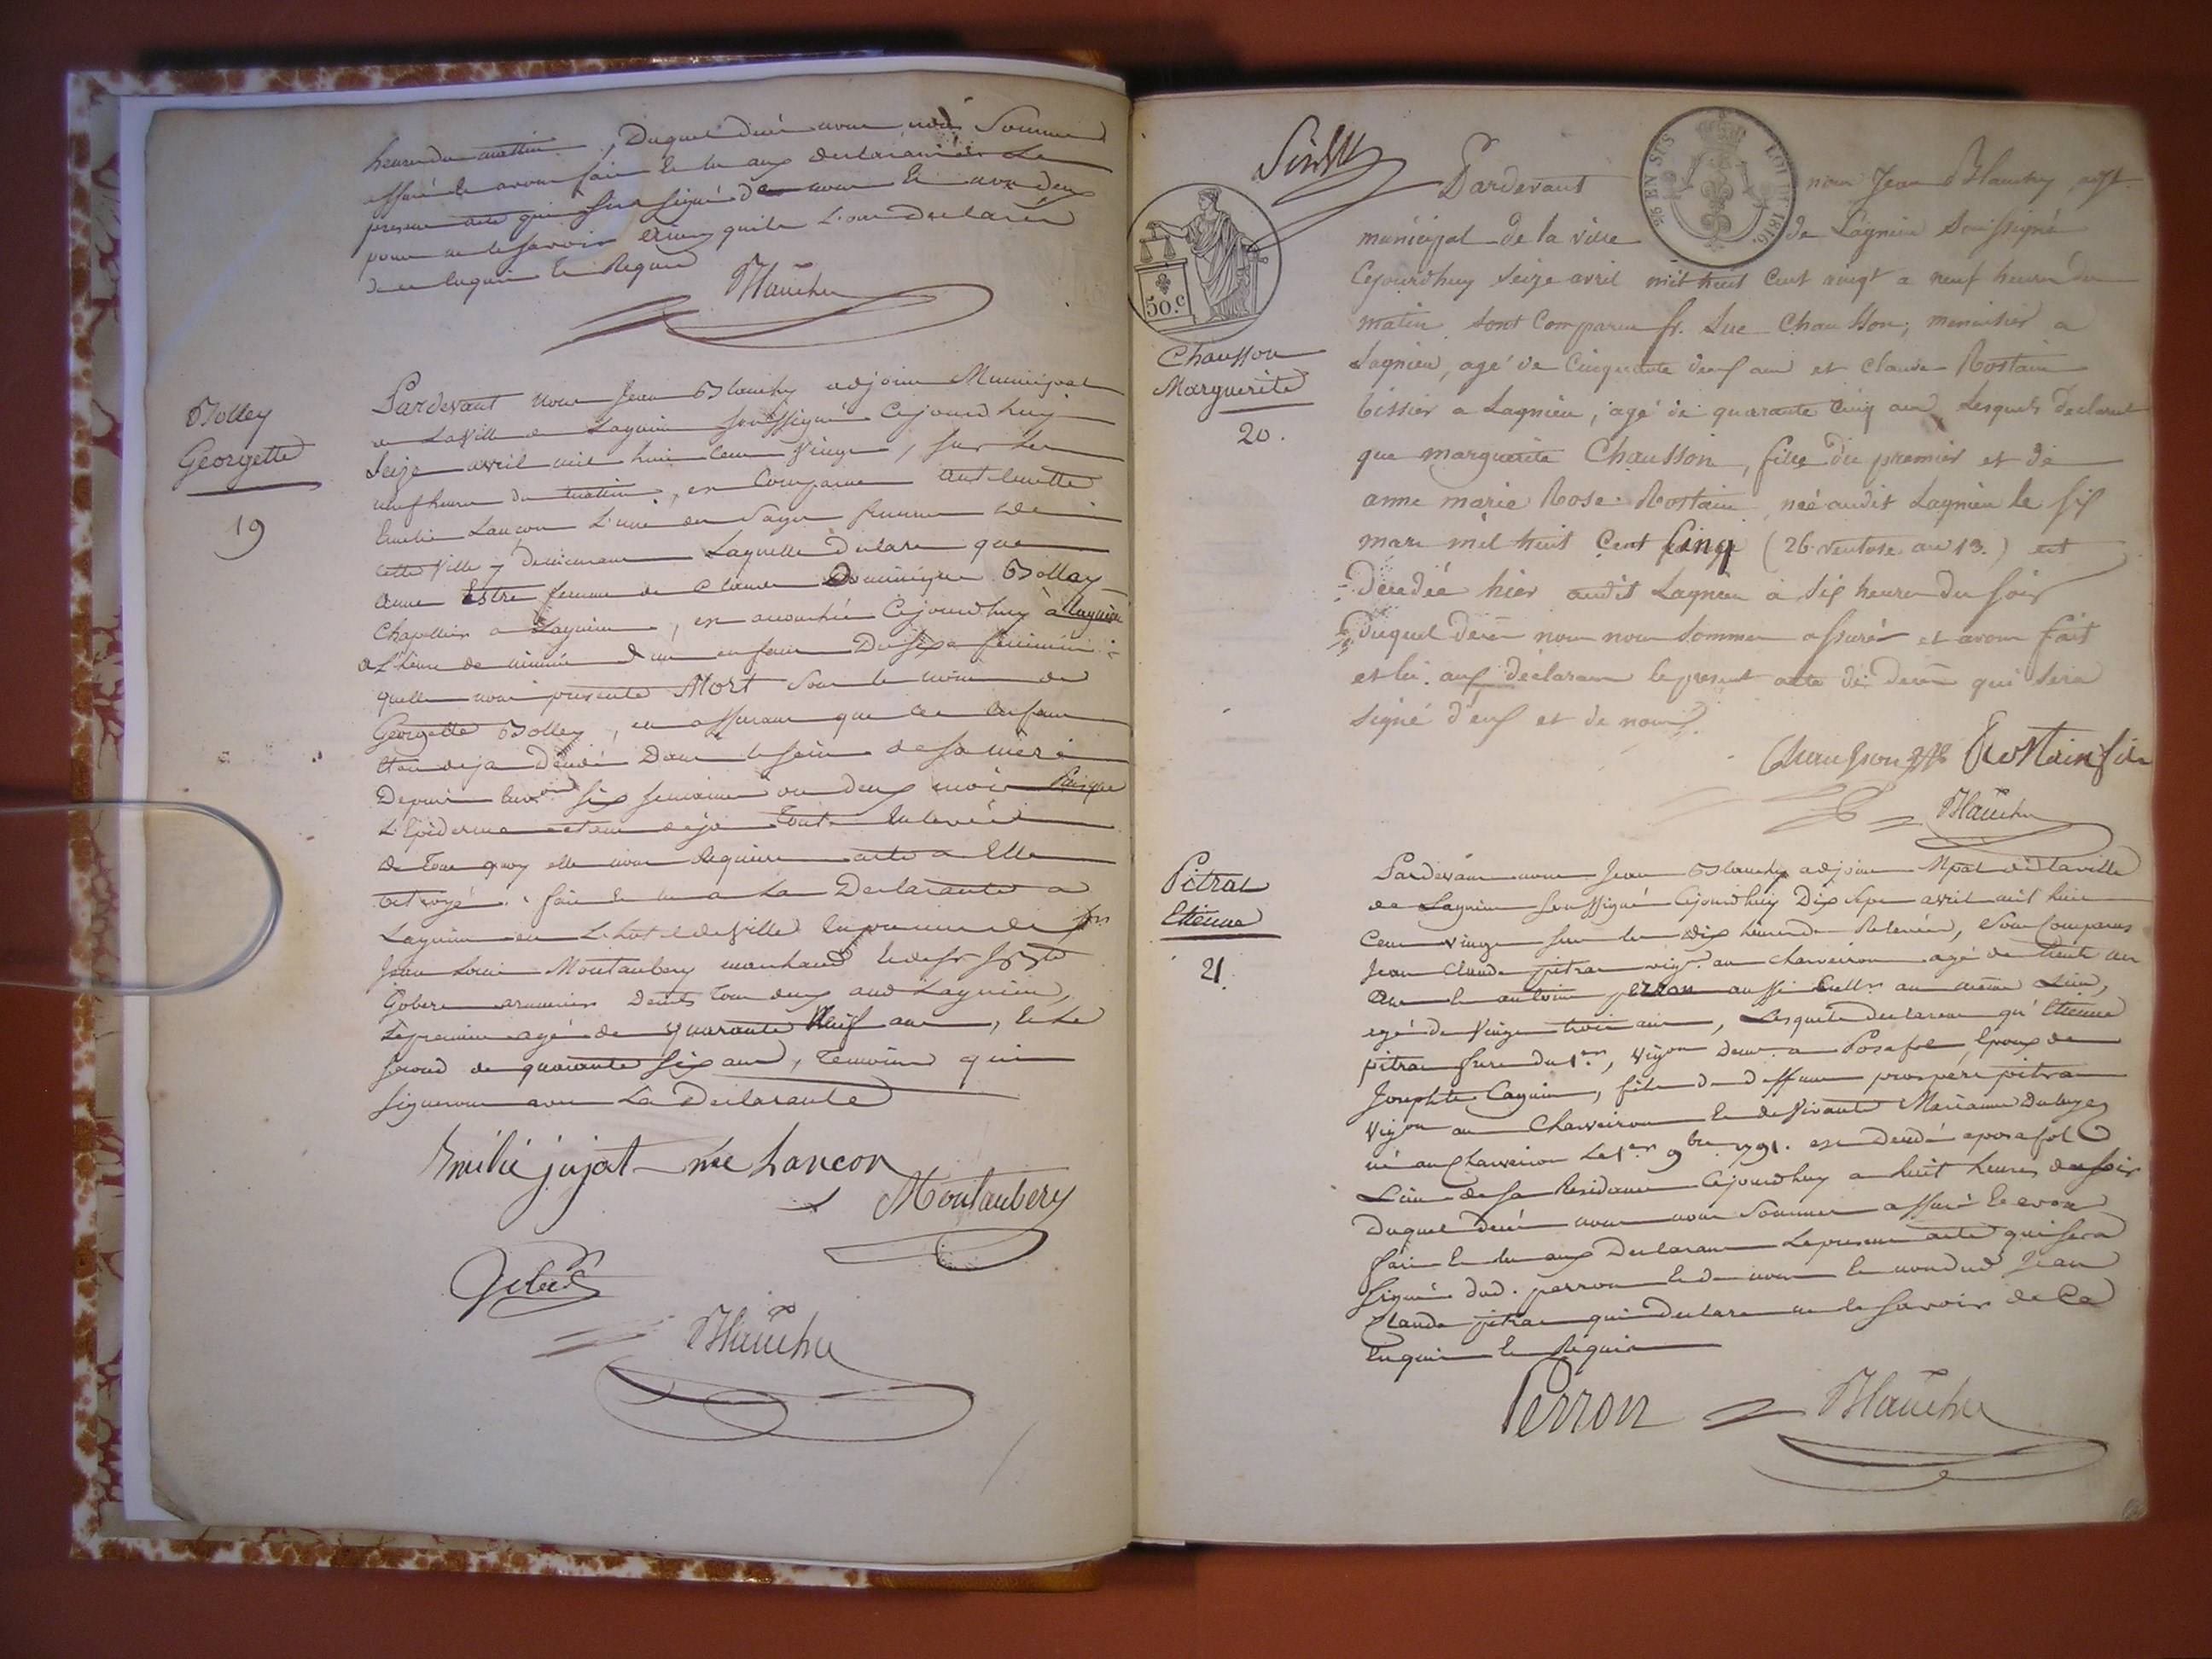 heure du mattin, Duquel decé nous nous Sommes
assuré et avons fait et lu aux declarants le
present acte qui sera signé de nous et non deux
pour ne le savoir ainsy quils l'ont declaré
de ce enquis et Requis
Blanchy
Bolley
Georgette
19
Pardevant nous Jean Blanchy adjoint Municipal
de La Ville de Lagnieu soussigné Cejourdhuy
Seize avril mil huit Cent Vingt, sur les
neuf heures du mattin, est Comparue
Emelie Lançon L'une des Sages femmes de
cette Ville y demeurant Laquelle declare que
anne Estre femme de Claude Dominique Bolley
Chapellier a Lagnieu, est accouchée Cejourdhuy à Lagnieu
a L'heure de minuit d'un enfant Du sexe feminin
quelle nous presente Mort sous le nom de
Georgette Bolley, en assurant que cet enfant
étoit deja Decédé Dans le sein de sa mère
Depuis environ six semaines ou deux mois Puisque
L'Epiderme etoit deja Toute Enlevée
de Tout quoy elle nous Requiere acte a Elle
octroyé. fait et lu a La Declarante a
Lagnieu en L'hotel de Ville En presence de Srs
Jean Louis Montaubery marchand et de Sr
Gobere armurier Deuts Tous deux aud Lagnieu,
Le premier agé de quarante Neuf ans, et Le
second de quarante six ans, Temoins qui
signeront avec La Declarante
Emilie jujat née Lancon
Montaubery
Blanchy
50.c
25 EN SUS
LOI DE 1816.
Chausson
Marguerite
20.
Pardevant nous Jean Blanchy adjt.
municipal de la ville de Lagnieu Soussigné
Cejourdhuy seize avril mil huit Cent vingt a neuf heures du
matin sont Comparus fr. Luc Chausson, menuisier a
Lagnieu, agé de Cinquante deux ans et Claude Rostain
tissier a Lagnieu, agé de quarante cinq ans Lesquels declarent
que marguerite Chausson, fille du premier et de
anne marie Rose Rostain, née audit Lagnieu le six
mars mil huit Cent Cinq (26 ventose an 13.) est
Decedée hier audit Lagnieu à six heures du soir
Duquel decés nous nous sommes assurés et avons fait
et lu aux declarans le present acte de decés qui sera
signé d'eux et de nous.
Chausson Rostain fils
Blanchy
Pitrat
Etienne
21.
Pardevant nous Jean Blanchy adjoint Mpal de la ville
de Lagnieu soussigné Cejourdhuy Dix Sept avril mil huit
Cent vingt sur les dix heures de Relevée, Sont Comparus
Jean Claude pitrat vigon au charveiron agé de trente ans
et antoine perron aussi Cultr au même Lieu,
agé de Vingt trois ans, Lesquels declarent qu'Etienne
pitrat frere du 1er, Vigon demt a Posafol, Epoux de
Josephte Cagnin, fils de deffunt prospere pitrat
Vigon au Charveiron et de Vivante Marianne
né au Charveiron Le 1er 9bre 1791. est Decédé a posafol
Lieu de sa Residance Cejourdhuy a huit heures du soir
Duquel Decé nous nous Sommes assuré et avons
fait et lu aux Declarans Le present acte qui sera
signé dud. perron et de nous et non dud Jean
Claude pitrat qui declare ne le savoir de Ce
Enquis et Requis
Perron Blanchy